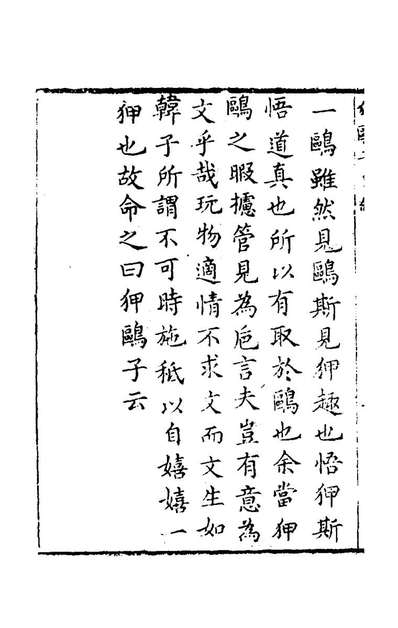 一鷗雖然見鷗斯見狎趣也悟狎斯
悟道真也所以有取於鷗也余當狎
鷗之暇攄管見為卮言夫豈有意為
文乎哉玩物適情不求文而文生如
韓子所謂不可時施秪以自嬉嬉一
狎也故命之曰狎鷗子云